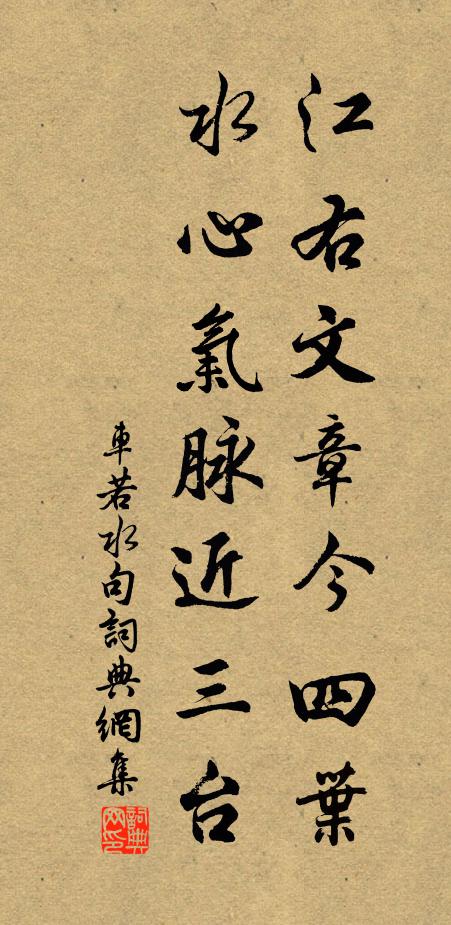 江右文章今四葉
水心氣脉近三台
車若水句詞典網集
詞典網印